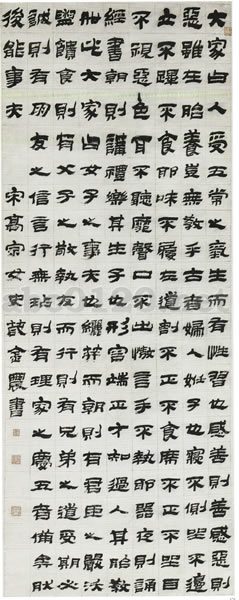 大家曰人受五常之理生而有性習也感善則善感惡則
惡雖在胎養豈無教乎古者婦人妊子也寢不側坐不邊
立不跛不食邪味不履左道割不正不食席不正不坐目
不視惡色耳不聽靡聲口不出傲言手不執邪器夜則誦
經書朝則講禮樂其生子也形容端正才知過人其胎教
如此大家曰女子之事夫也纚笄而朝則有君臣之嚴沃
盥饋食則有父子之敬而行則有兄弟之道受期必
誠則有朋友之信言行無玷則有理家之度五者備矣然
後能事夫 宋高宗女史箴金農書